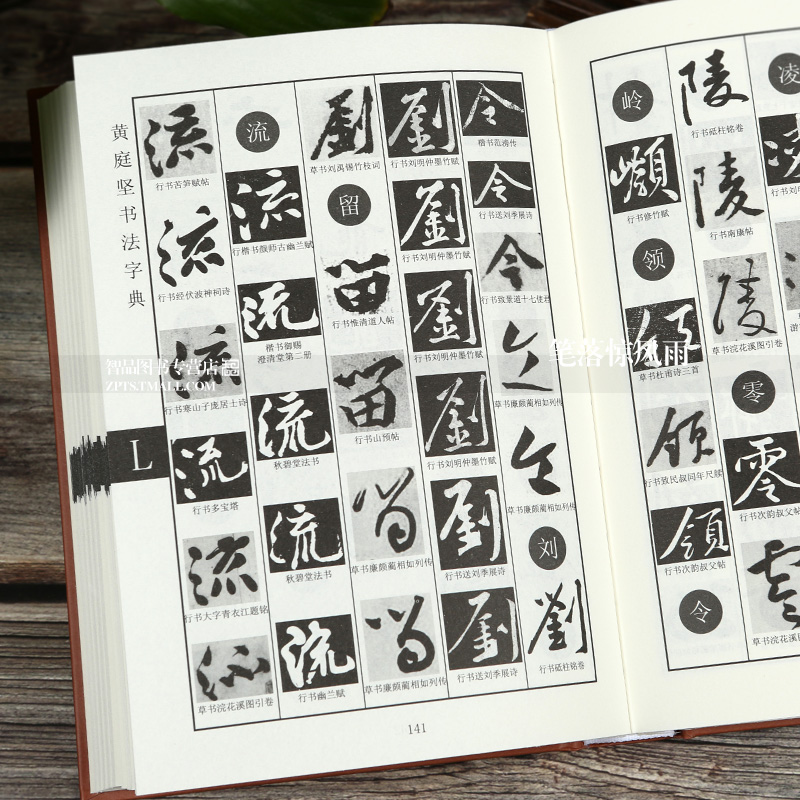 凌
陵
行书砥柱铭卷
陵
行书南康帖
陵
草书浣花溪图引卷
零
零
行书次韵叔父帖
岭
行书修竹赋
领
领
草书杜甫诗三首
领
行书致民叔同年尺牍
领
行书次韵叔父帖
令
令
楷书范滂传
令
行书送刘季展诗
令
行书致景道十七使君
令
草书廉颇蔺相如列传
令
草书廉颇蔺相如列传
刘
劉
行书砥柱铭卷
劉
行书刘明仲墨竹赋
劉
行书刘明仲墨竹赋
劉
行书刘明仲墨竹赋
劉
行书刘明仲墨竹赋
劉
行书送刘季展诗
劉
行书送刘季展诗
劉
草书刘禹锡竹枝词
留
留
行书惟清道人帖
留
行书山预帖
留
草书廉颇蔺相如列传
留
草书廉颇蔺相如列传
流
流
行楷书颜师古幽兰赋
流
楷书御赐
澄清堂第二册
流
秋碧堂法书
流
秋碧堂法书
流
行书幽兰赋
流
行书苦笋赋帖
流
行书经伏波神祠诗
流
行书寒山子庞居士诗
流
行书多宝塔
流
行书大字青衣江题铭
流
草书浣花溪图引卷
黄庭坚书法字典
L
141
智品图书专营店
ZPTS.TMALL.COM
笔落惊风雨